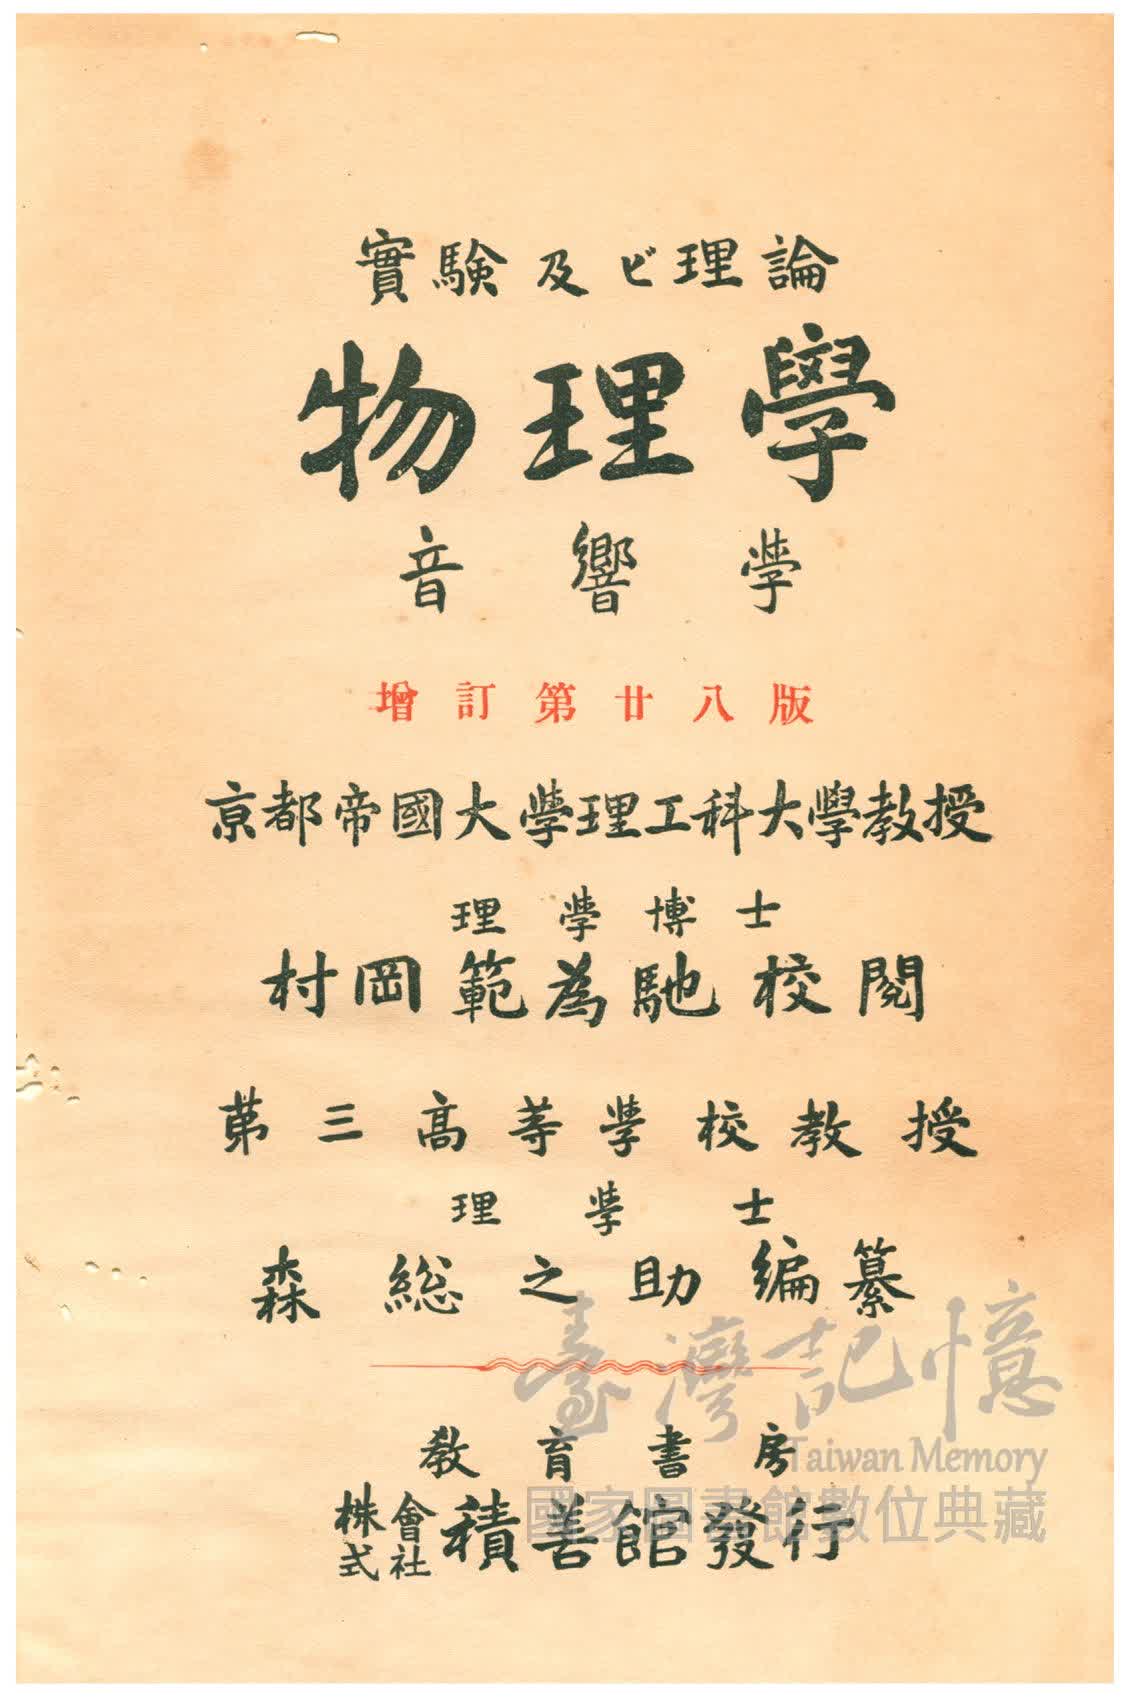 實験及ビ理論
物理學
音響学
增訂第廿八版
京都帝國大学理工科大學教授
理学博士
村岡範為馳校閲
第三高等学校教授
理学士
森総之助編纂
教育書房
株式會社積善館發行
臺灣記憶
Taiwan Memory
國家圖書館數位典藏